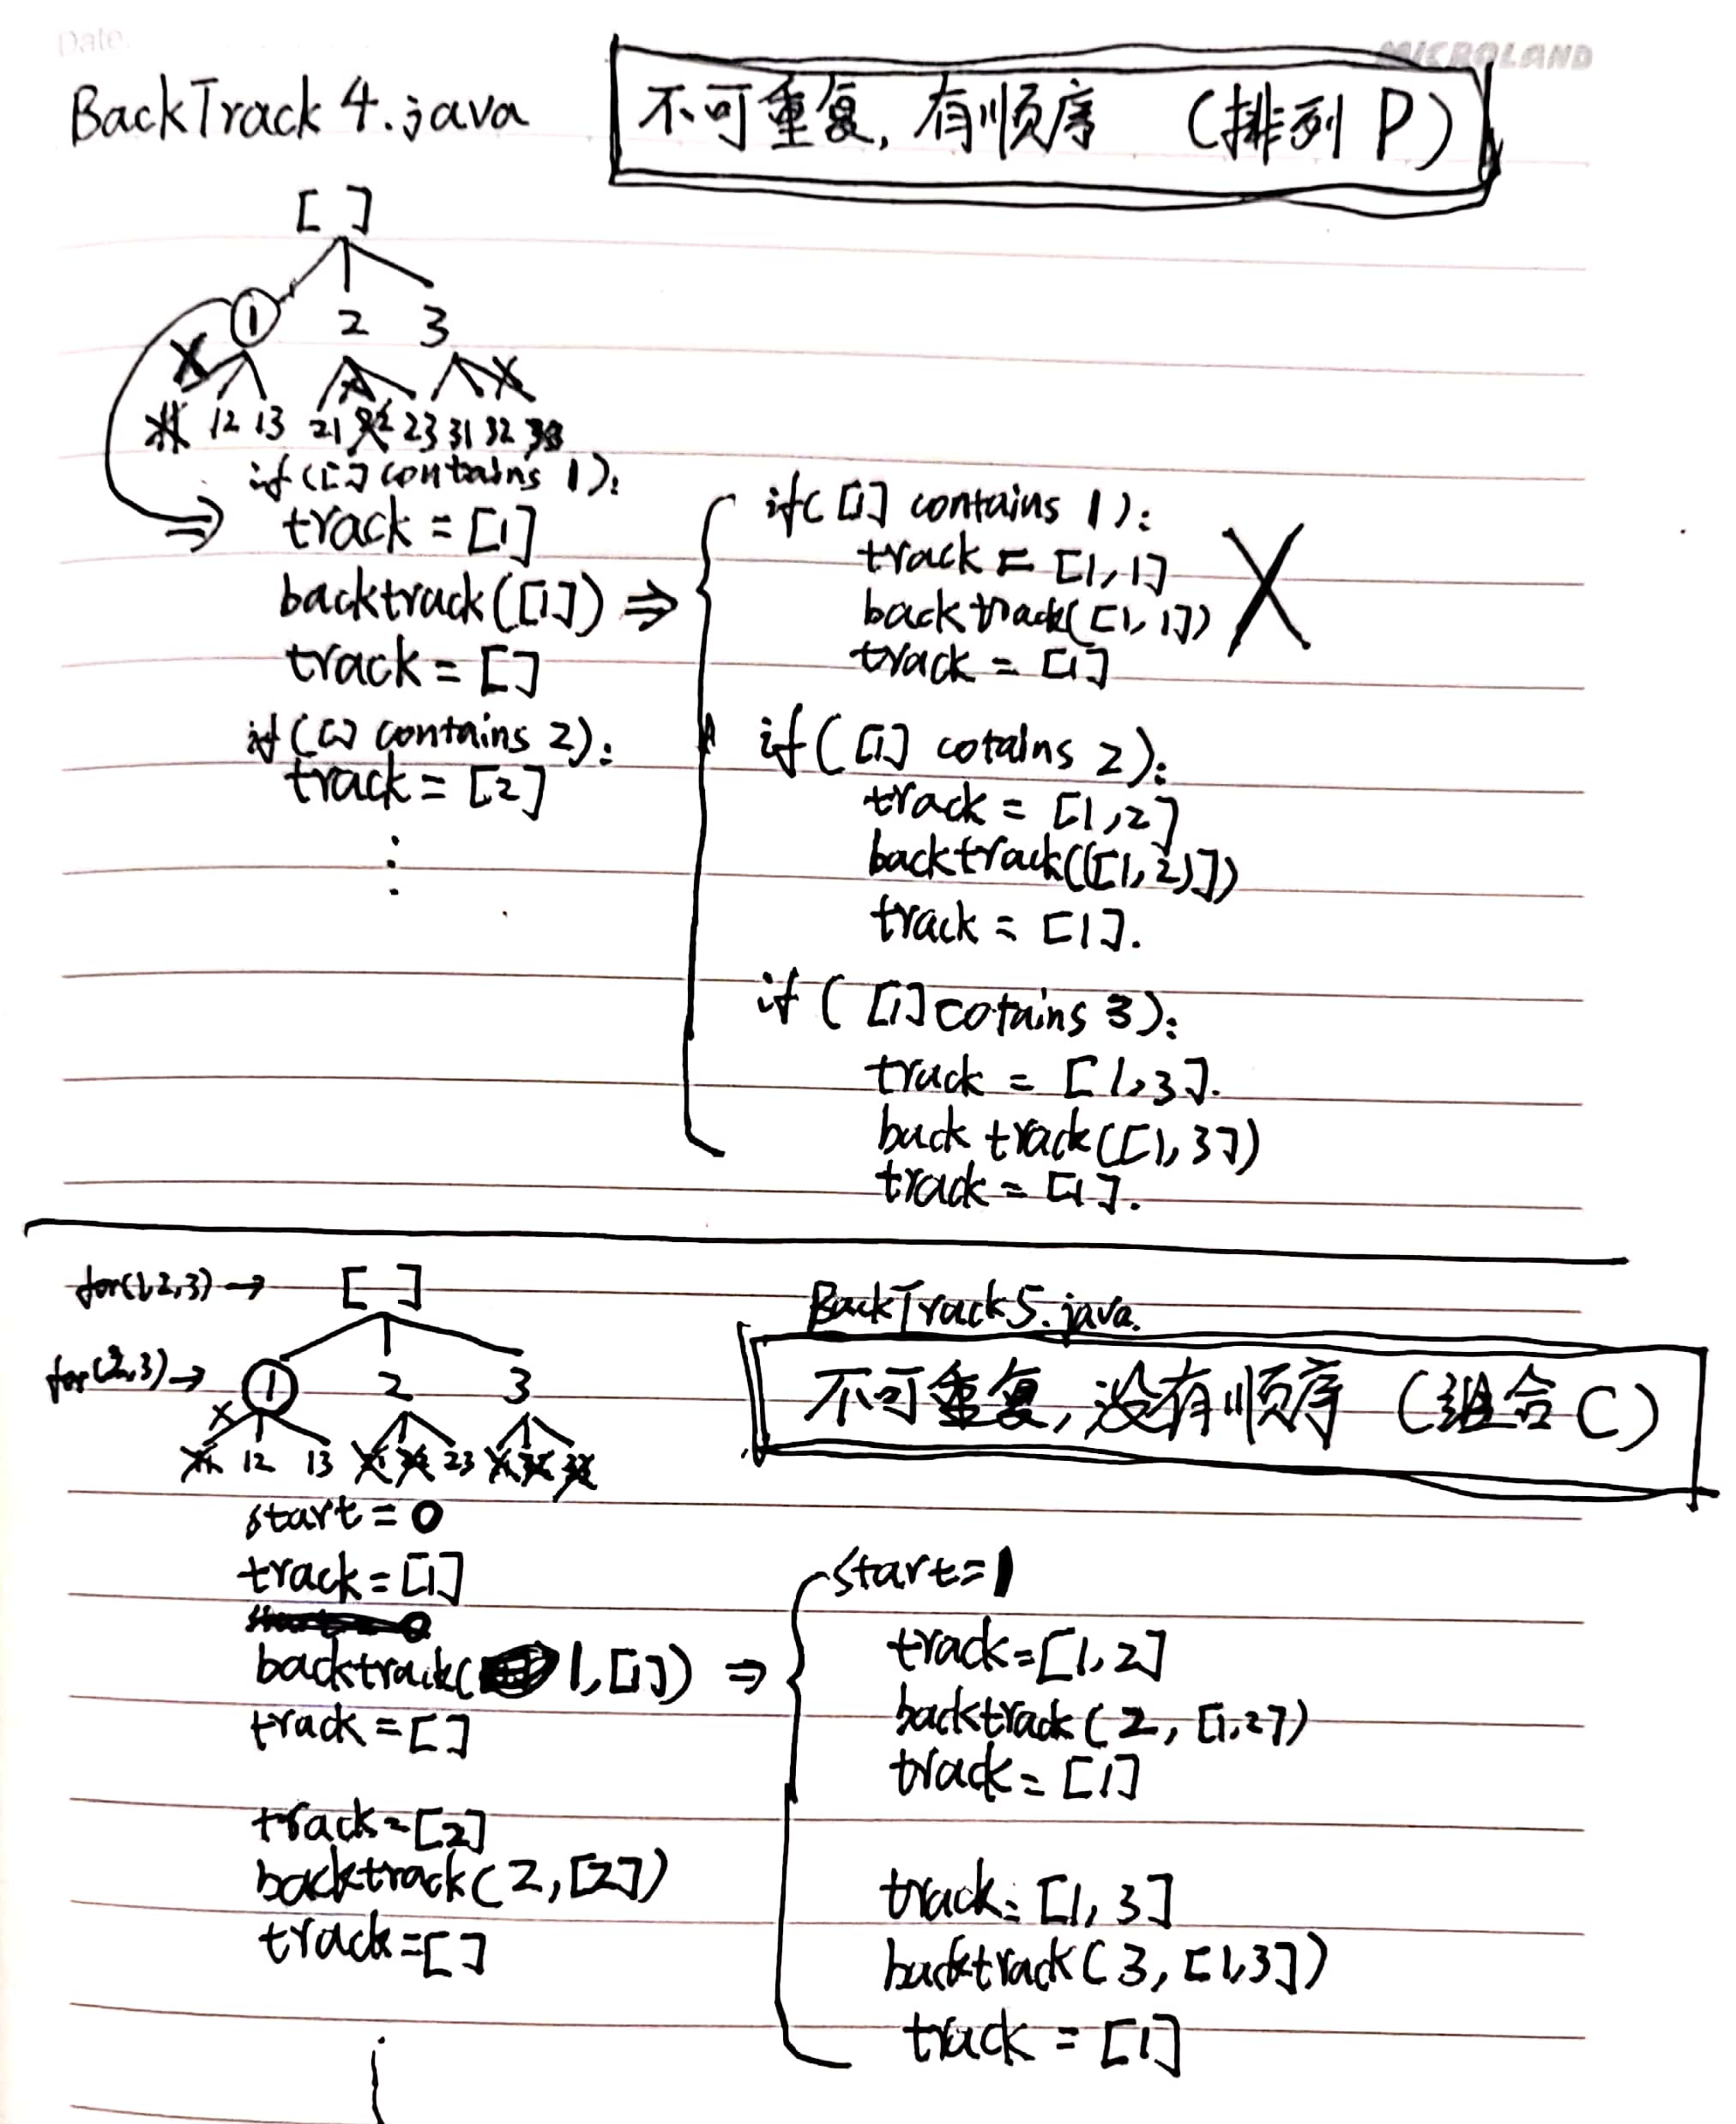 Date.
MICROLAND
BackTrack4.java
不可重复,有顺序 (排列 P)
[ ]
1 2 3
12 13 21 23 31 32
if([] contains 1):
track = [1]
backtrack([1]) ⇒
track = []
if([] contains 2):
track = [2]
⋮
if([1] contains 1):
track = [1,1]
backtrack([1,1])
track = [1]
X
if([1] cotains 2):
track = [1,2]
backtrack(([1,2)])
track = [1].
if([1] cotains 3):
track = [1,3].
back track([1,3])
track = [1].
for(1,2,3) → [ ]
for(2,3) → 1 2 3
12 13 23
BackTrack5.java.
不可重复,没有顺序 (组合 C)
start = 0
track = [1]
backtrack( 1,[1]) ⇒
track = []
track = [2]
backtrack(2,[2])
track = []
start = 1
track = [1,2]
backtrack(2,[1,2])
track = [1]
track = [1,3]
backtrack(3,[1,3])
track = [1]